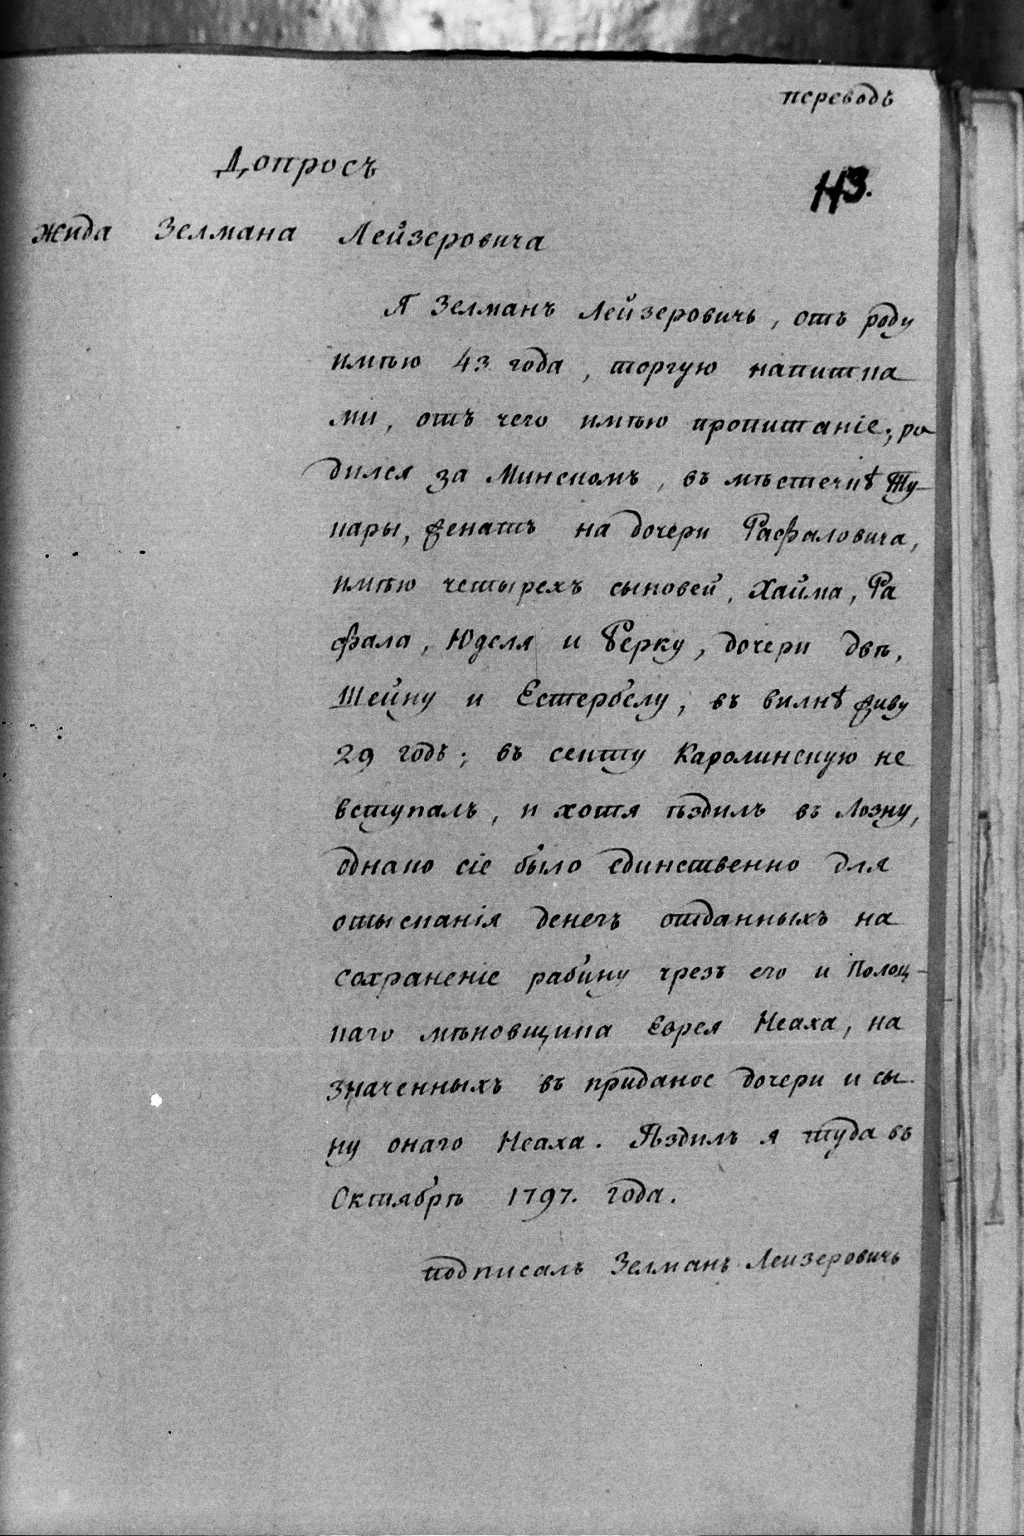 переводъ
Допросъ
113.
жида Зелмана Лейзеровича
Я Зелманъ Лейзеровичь, отъ роду
имѣю 43 года, торгую напитка
ми, отъ чего имѣю пропитаніе; ро
дился за Минскомъ, въ мѣстечкѣ Ту-
кары, женатъ на дочери Рафаловича,
имѣю четырехъ сыновей, Хайма, Ра
фала, Юделя и Берку, дочери двѣ,
Шейну и Естербелу, въ вилнѣ живу
29 годъ; въ секту Каролинскую не
вступалъ, и хотя ѣздилъ въ Лозну,
однако сіе было единственно для
отысканія денегъ отданныхъ на
сохраненіе рабину чрезъ его и Полоц-
каго мѣновщика Еврея Неаха, на
значенныхъ въ приданое дочери и сы
ну онаго Неаха. Ѣздилъ я туда въ
Октябрѣ 1797. года.
подписалъ Зелманъ Лейзеровичь